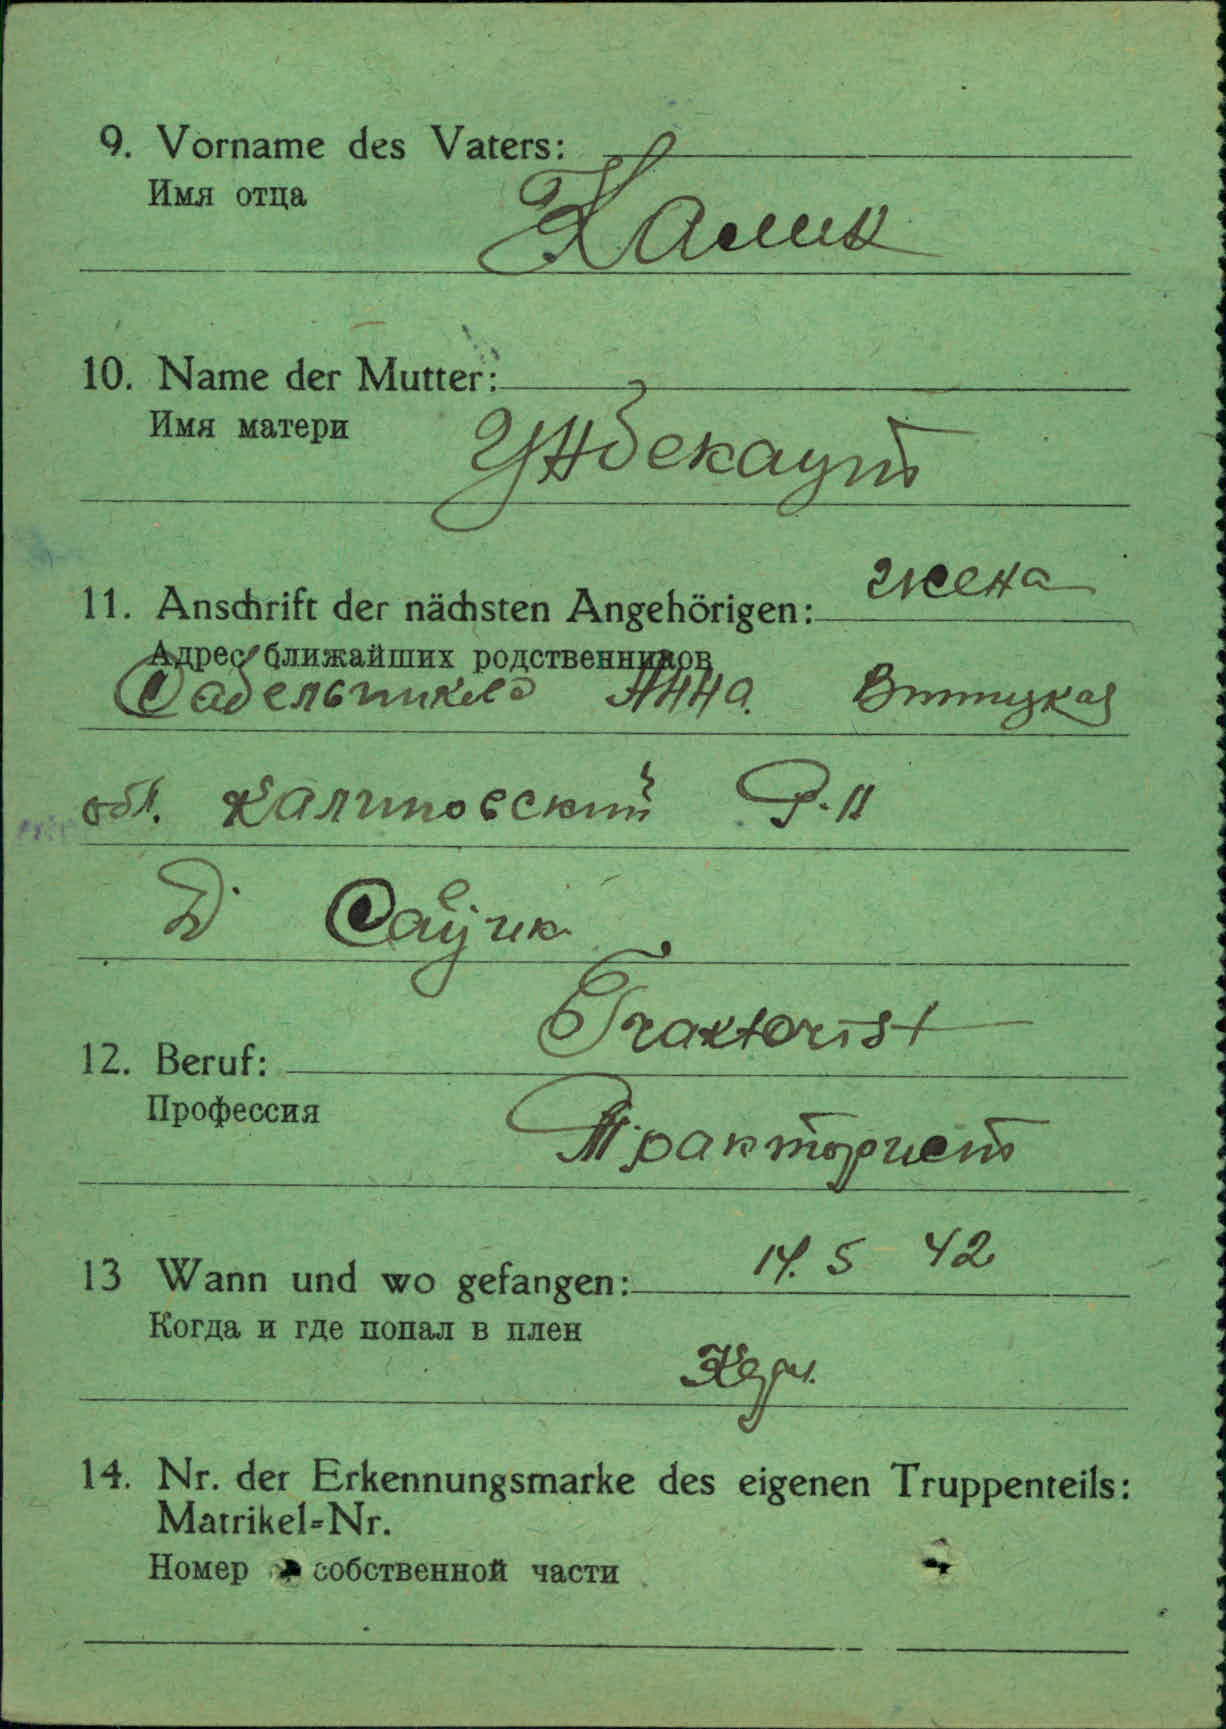 9. Vorname des Vaters:
Имя отца
Халик
10. Name der Mutter:
Имя матери
11. Anschrift der nächsten Angehörigen: жена
Адрес ближайших родственников
Анна
обл. Калиновский Р-н
Д.
Traktorist
12. Beruf:
Профессия
Тракторист
13 Wann und wo gefangen: 14. 5 42
Когда и где попал в плен
Керч.
14. Nr. der Erkennungsmarke des eigenen Truppenteils:
Matrikel-Nr.
Номер собственной части